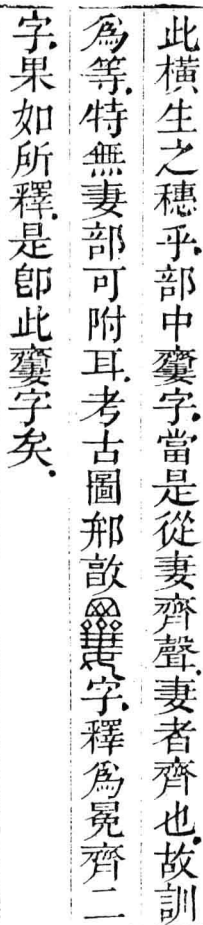 此橫生之穗乎部中𪗍字當是從妻齊聲妻者齊也故訓
爲等特無妻部可附耳考古圖邢敦字釋爲冕齊二
字果如所釋是卽此𪗍字矣